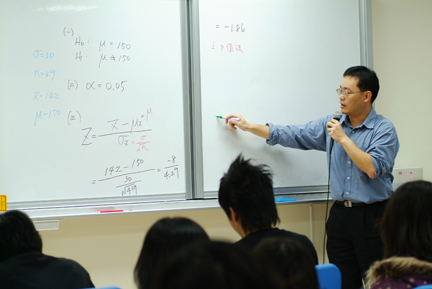 (一)
H₀ : μ = 150
H₁ : μ ≠ 150
σ=30
n=49
x̄=142
μ=150
(二) α = 0.05
(三)
Z = (x̄ - μx̄) / σx̄
μ
σ/√n
= (142 - 150) / (30/√49) = -8 / 4.29
= -1.86